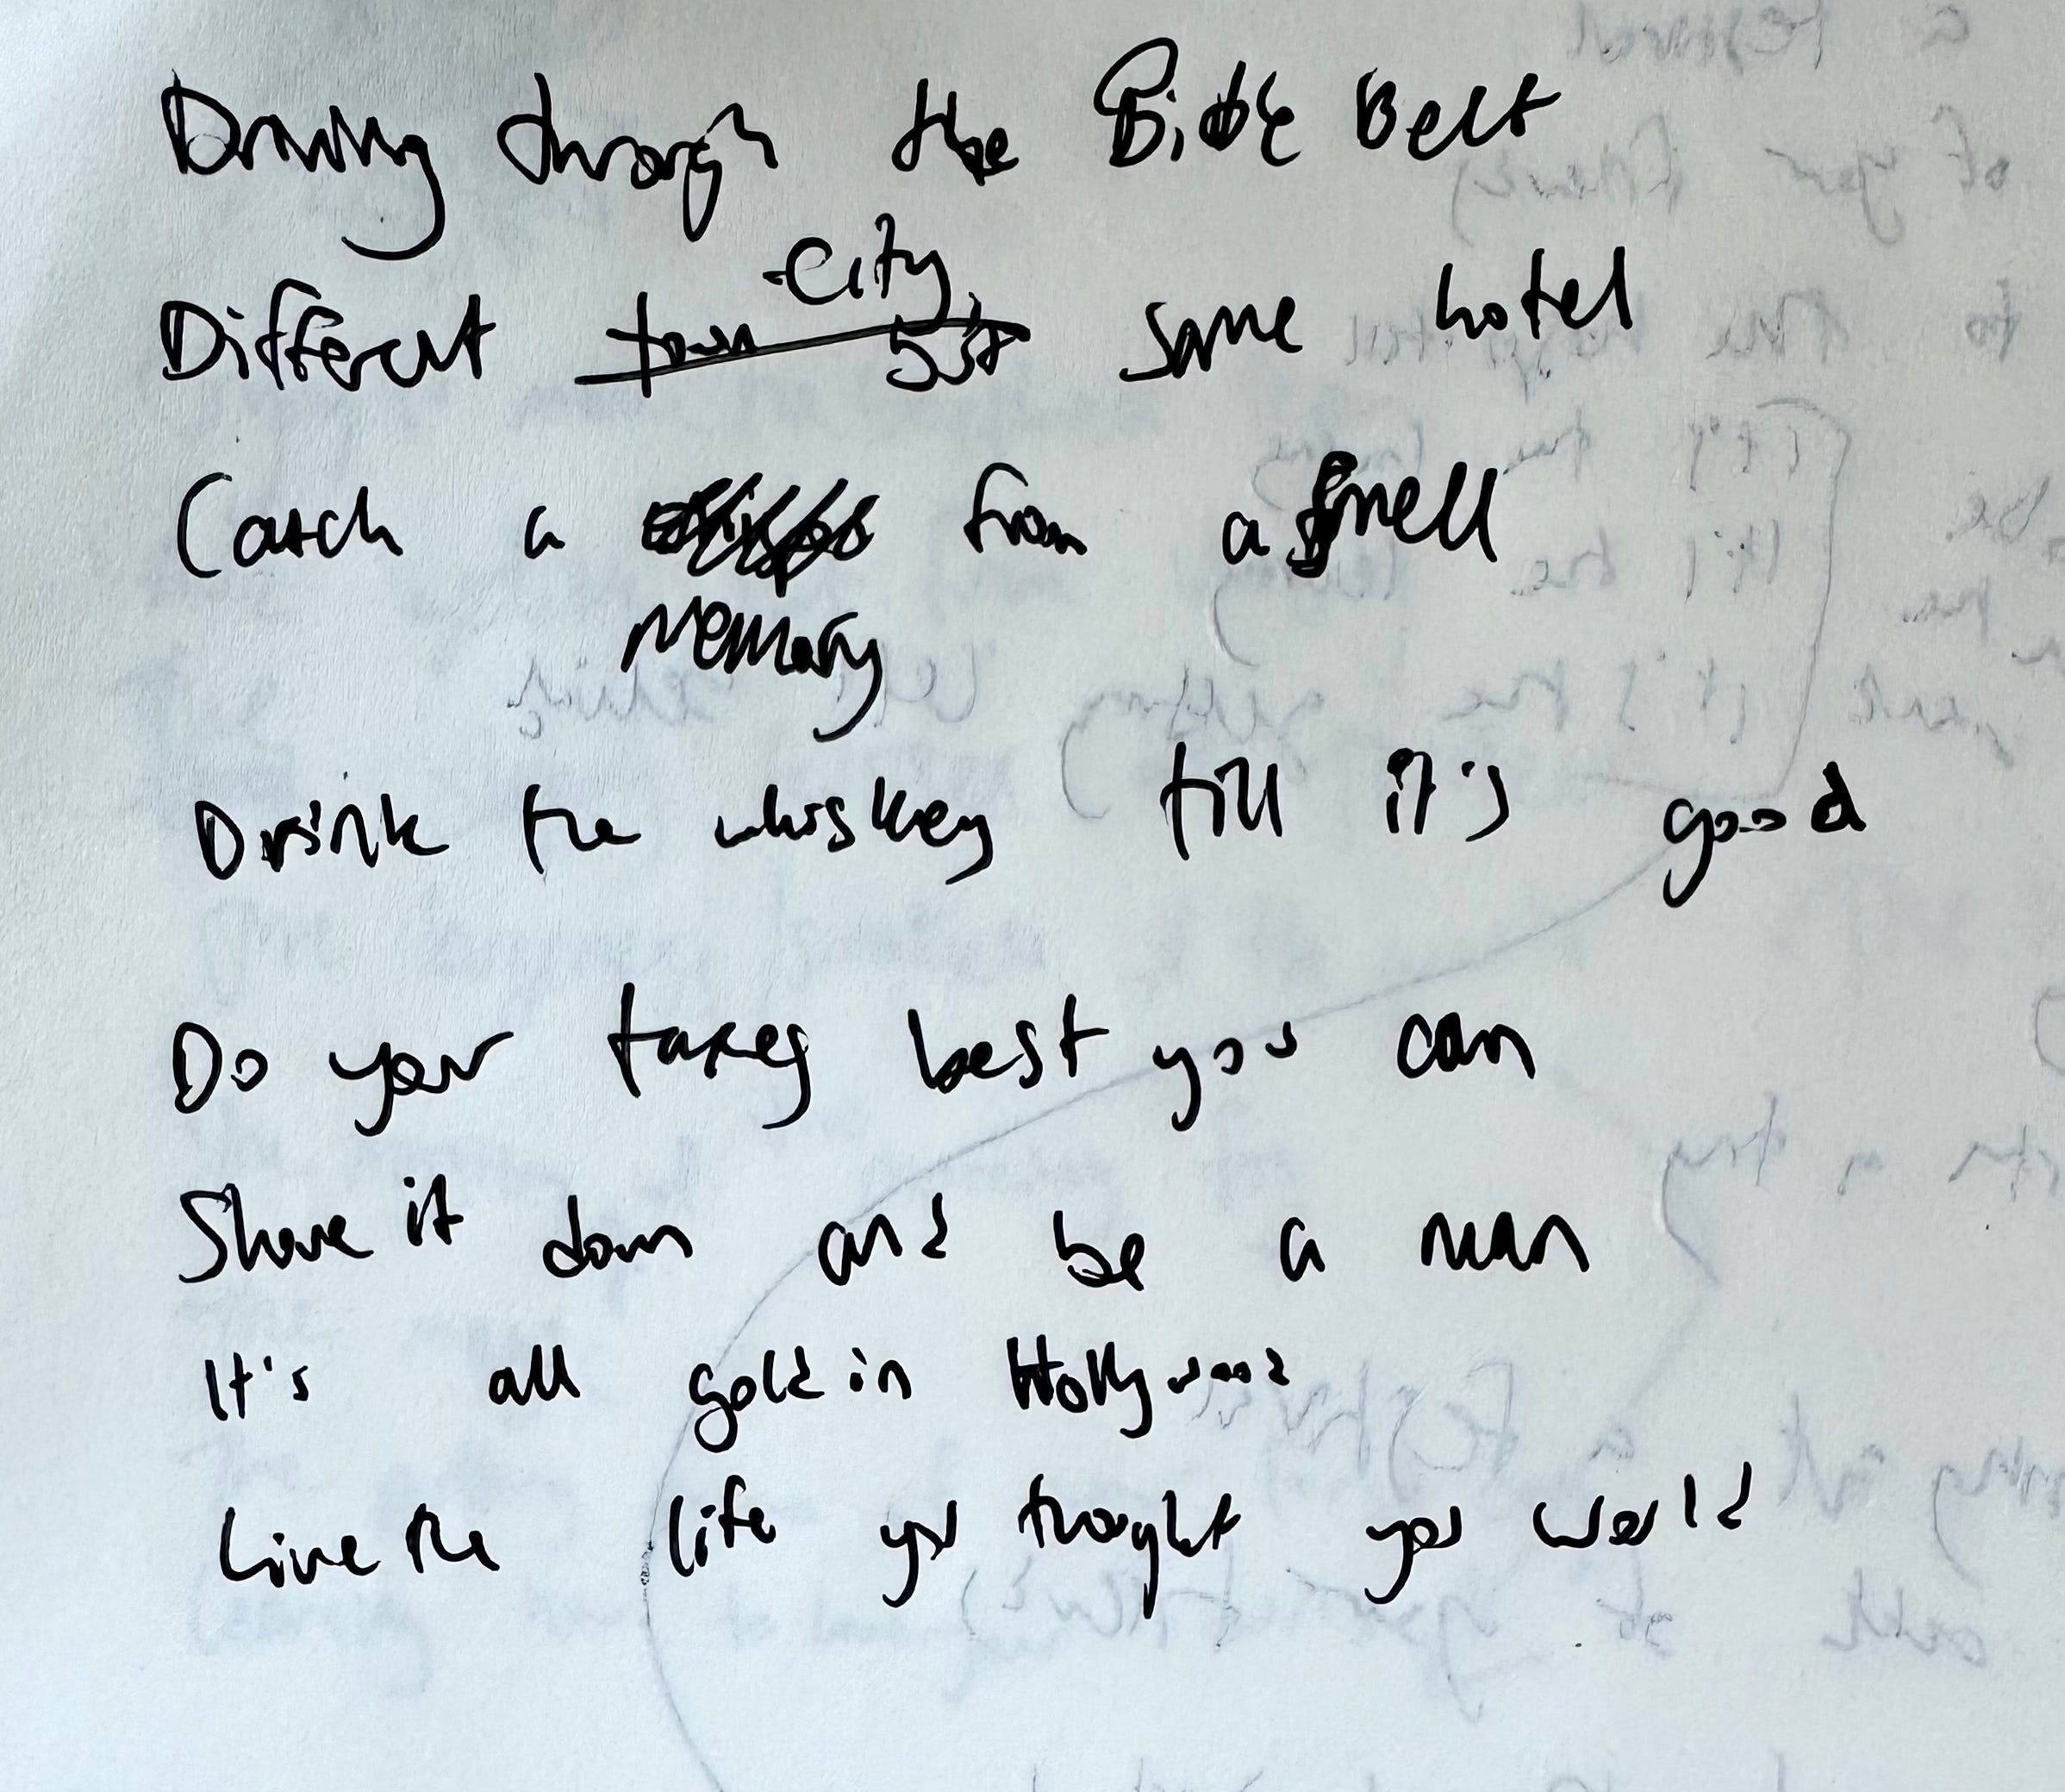 Driving through the Bible Belt
City,
Different town just same hotel
Catch a from a smell
Memory
Drink the whiskey till it's good
Do your taxes best you can
Shove it down and be a man
It's all gold in Hollywood
Live the life you thought you would